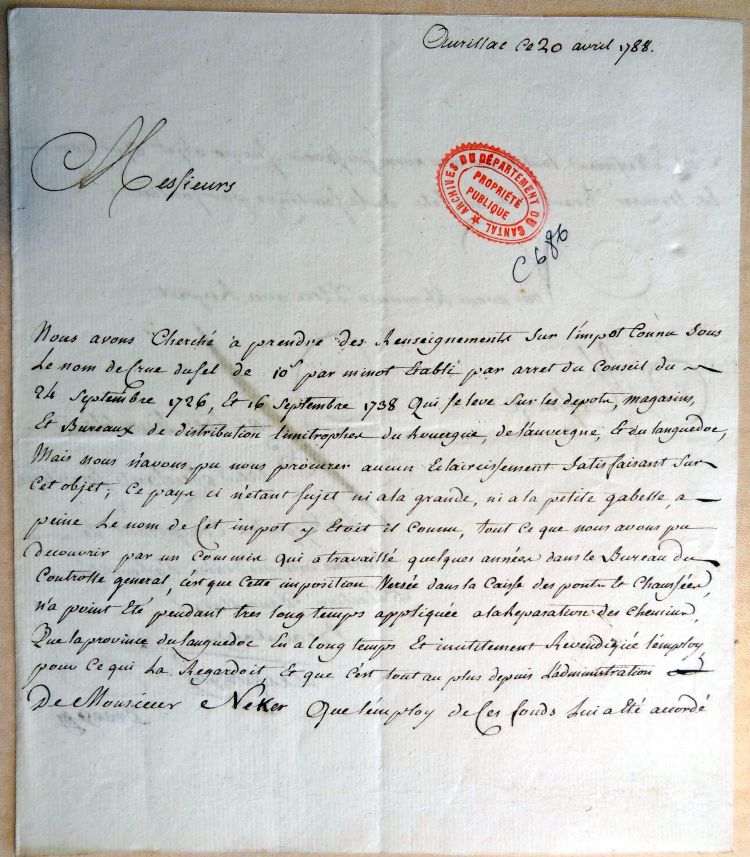 Aurillac ce 20 avril 1788.
Messieurs
ARCHIVES DU DÉPARTEMENT DU CANTAL
PROPRIÉTÉ
PUBLIQUE
C 686
Nous avons Cherché a prendre des Renseignements Sur l'impot Connu Sous
Le nom de Crue du Sel de 10s par minot Etabli par arret du Conseil du
24 Septembre 1726, Et 16 Septembre 1738 Qui Se leve Sur les depots, magasins,
Et Bureaux de distribution limitrophes du Rouergue, de l'auvergne, Et du languedoc,
Mais nous n'avons pu nous procurer aucun Eclaircissement Satisfaisant Sur
Cet objet; Ce pays ci n'etant Sujet ni a la grande, ni a la petite gabelle, a
peine Le nom de Cet impot y Etoit il Connu, tout ce que nous avons pu
decouvrir par un Commis qui a travaillé quelques années dans le Bureau du
Controlle general, c'est que Cette imposition Versée dans la Caisse des ponts Et Chaussées,
n'a point Eté pendant tres long temps appliquée a la Reparation des Chemins,
Que la province du Languedoc En a long temps Et inutilement Revendiqué l'employ
pour Ce qui La Regardoit Et que C'est tout au plus depuis L'administration
De Monsieur Neker Que l'employ de Ces fonds lui a Eté accordé